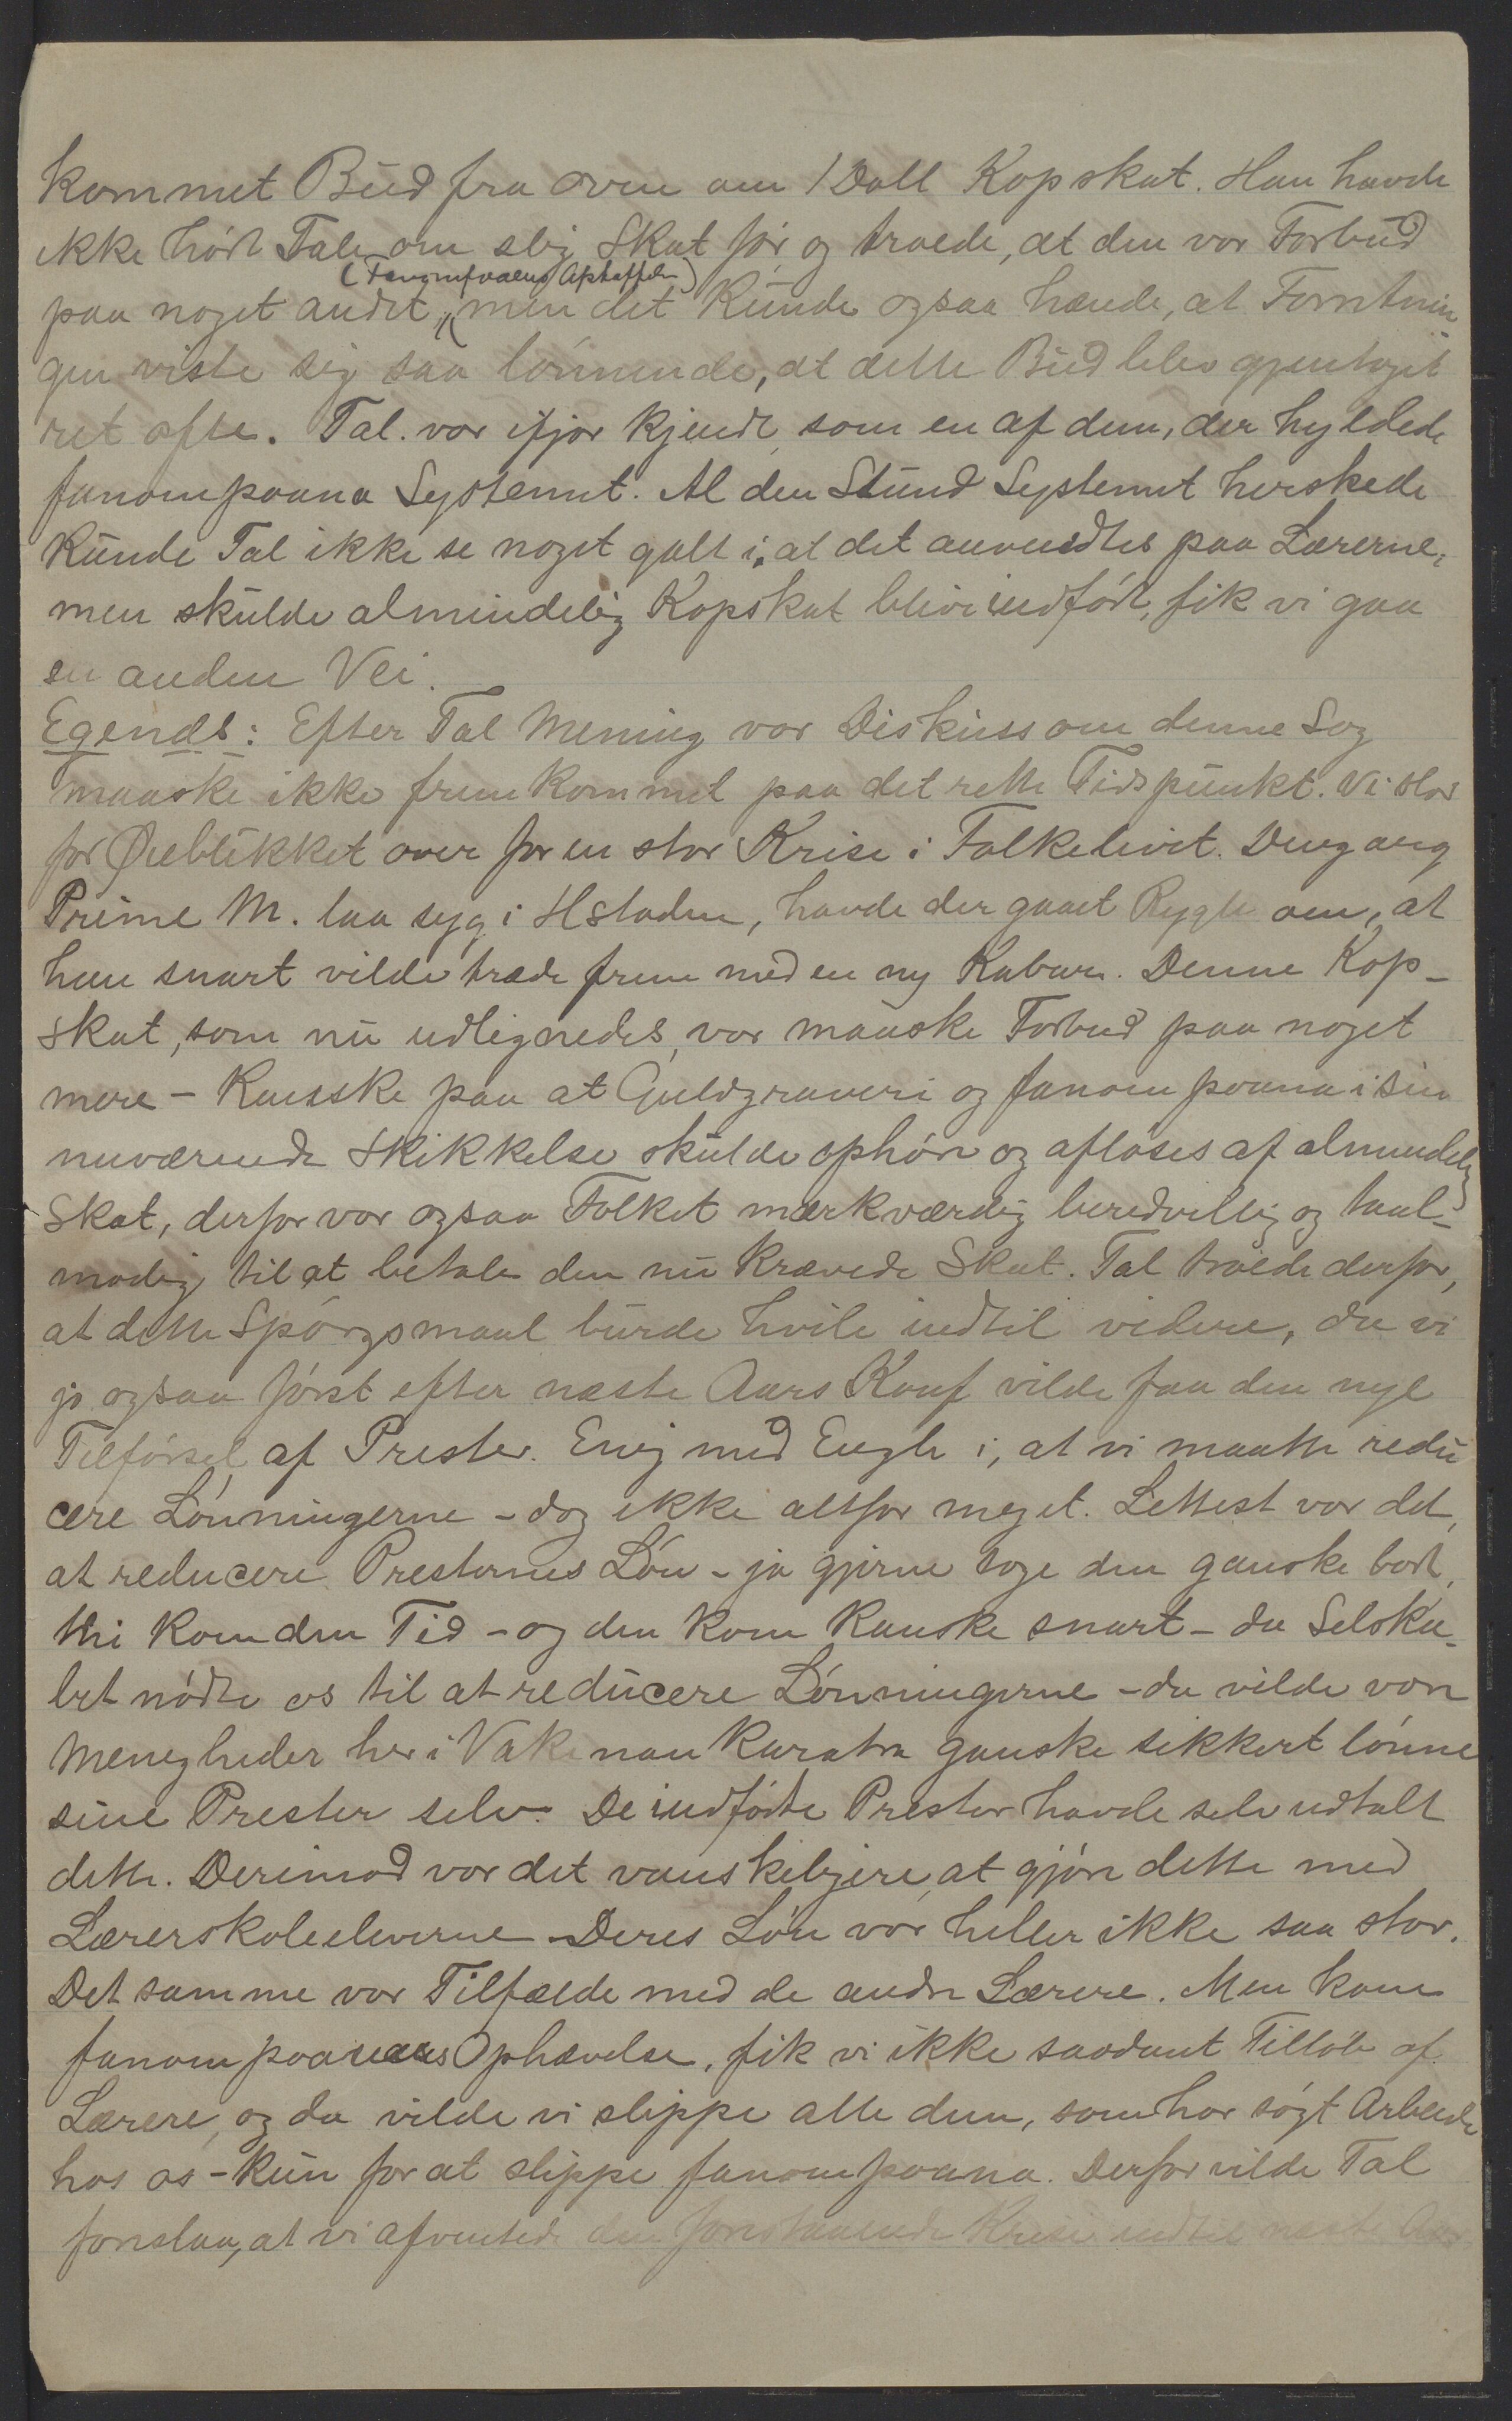 kommet Bud fra oven om 1 Doll Kopskat. Han havde
ikke hørt Tale om slig Skat før og troede, at den var Forbud
(Fanompoanens Afskaffelse)
paa noget andet, men det kunde ogsaa hænde, at Forretnin
gen viste sig saa lønnende, at dette Bud blev gjentaget
ret ofte. Tal. var ifjor kjendt som en af dem, der hyldede
fanompoana Systemet. Al den Stund Systemet herskede
kunde Tal ikke se noget galt i, at det anvendtes paa Lærerne,
men skulde almindelig Kopskat blive indført, fik vi gaa
en anden Vei.
Egenæs: Efter Tal Mening var Diskuss om denne Sag
maaske ikke fremkommet paa det rette Tidspunkt. Vi staar
for Øieblikket over for en stor Krise i Folkelivet. Dengang
Prime M. laa syg i Hstaden, havde der gaaet Rygte om, at
han snart vilde træde frem med en ny Kabary. Denne Kop-
skat, som nu udlignedes, var maaske Forbud paa noget
mere - kanske paa at Guldgraveri og fanompoana i sin
nuværende Skikkelse skulde ophøre og afløses af almindelig
Skat, derfor var ogsaa Folket mærkværdig beredvillig og taal-
modig til at betale den nu krævede Skat. Tal troede derfor,
at dette Spørgsmaal burde hvile indtil videre, da vi
jo ogsaa først efter næste Aars Konf vilde faa den nye
Tilførsel af Prester. Enig med Engh i, at vi maatte redu
cere Lønningerne - dog ikke altfor meget. Lettest var det,
at reducere Presternes Løn - ja gjerne tage den ganske bort,
thi kom den Tid - og den kom kanske snart - da Selska-
bet nødte os til at reducere Lønningerne - da vilde vore
Menigheder her i Vakinankaratra ganske sikkert lønne
sine Prester selv. De indfødte Prester havde selv udtalt
dette. Derimod var det vanskeligere, at gjøre dette med
Lærerskoleeleverne - Deres Løn var heller ikke saa stor.
Det samme var Tilfælde med de andre Lærere. Men kom
fanompoanens Ophævelse, fik vi ikke saadant Tilløb af
Lærere, og da vilde vi slippe alle dem, som har søgt Arbeide
hos os - kun for at slippe fanompoana. Derfor vilde Tal
foreslaa, at vi afventede den forestaaende Krise indtil næste Aar